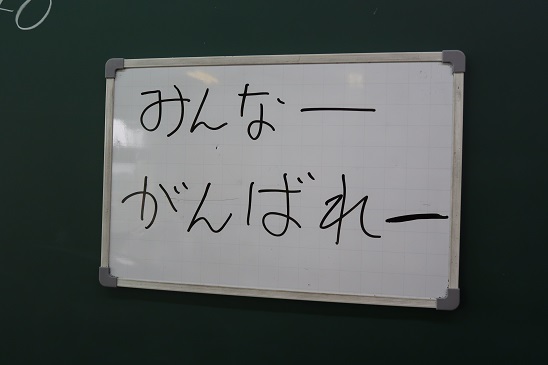 みんなー
がんばれー